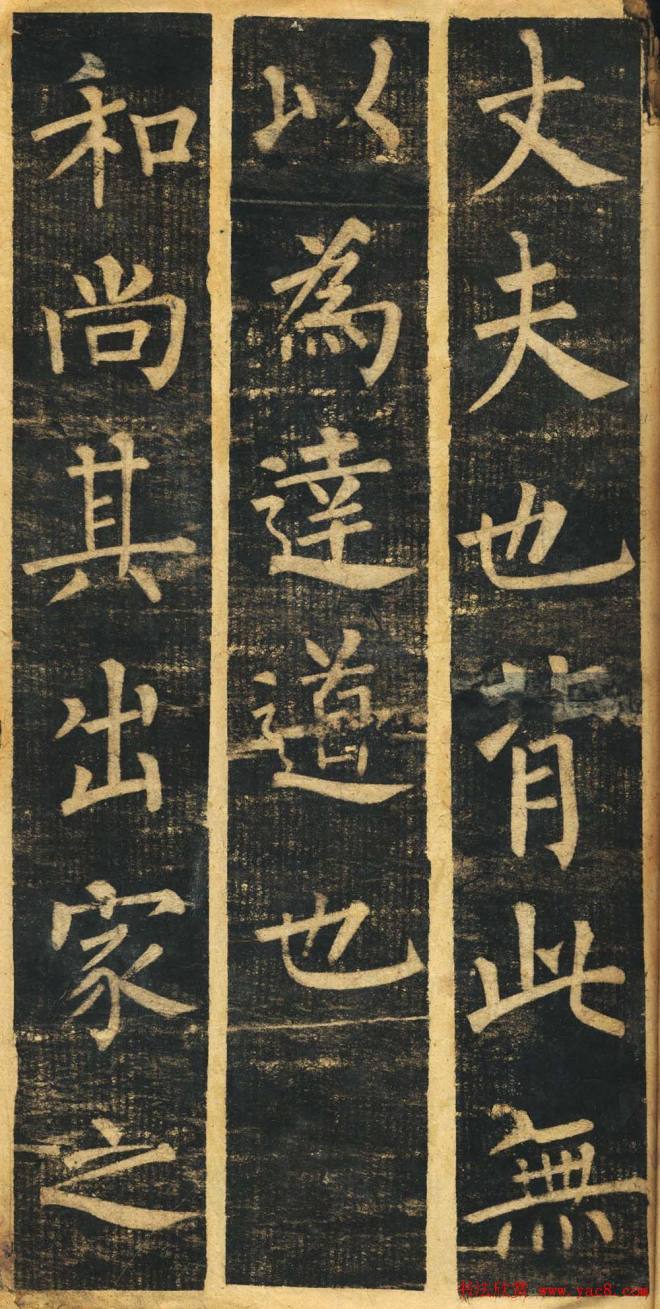 丈夫也背此無
以為達道也
和尚其出家之
書法欣賞 www.yac8.com